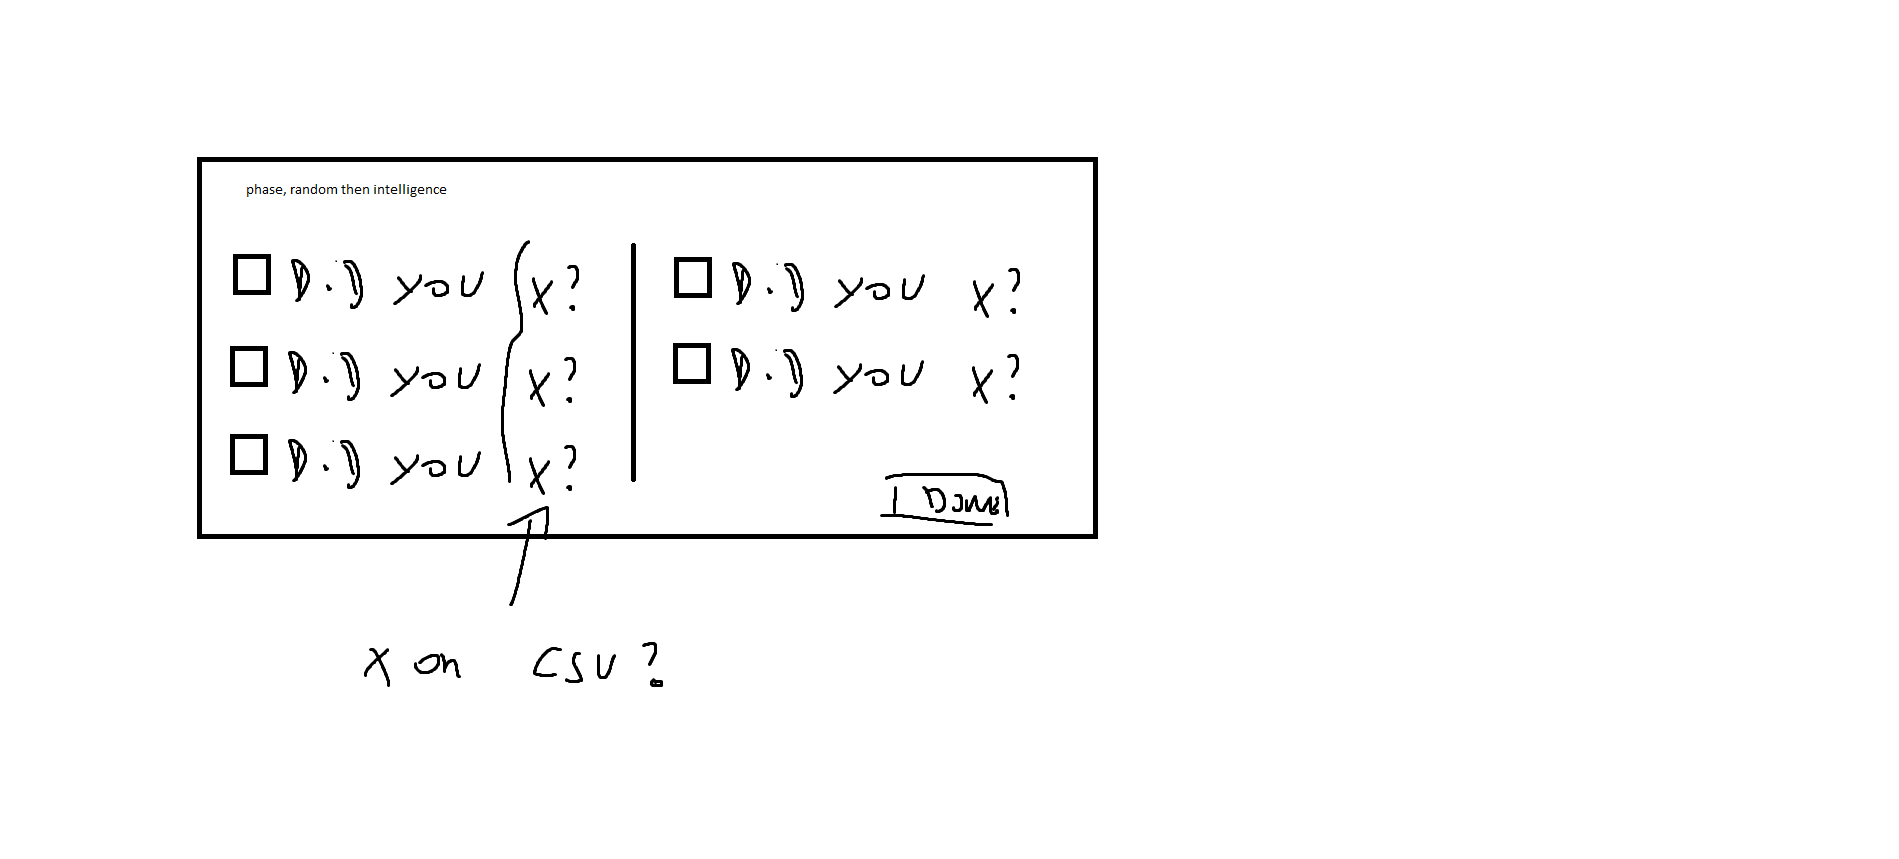 phase, random then intelligence
Did you x?
Did you x?
Did you x?
Did you x?
Did you x?
I Done
x on CSV?